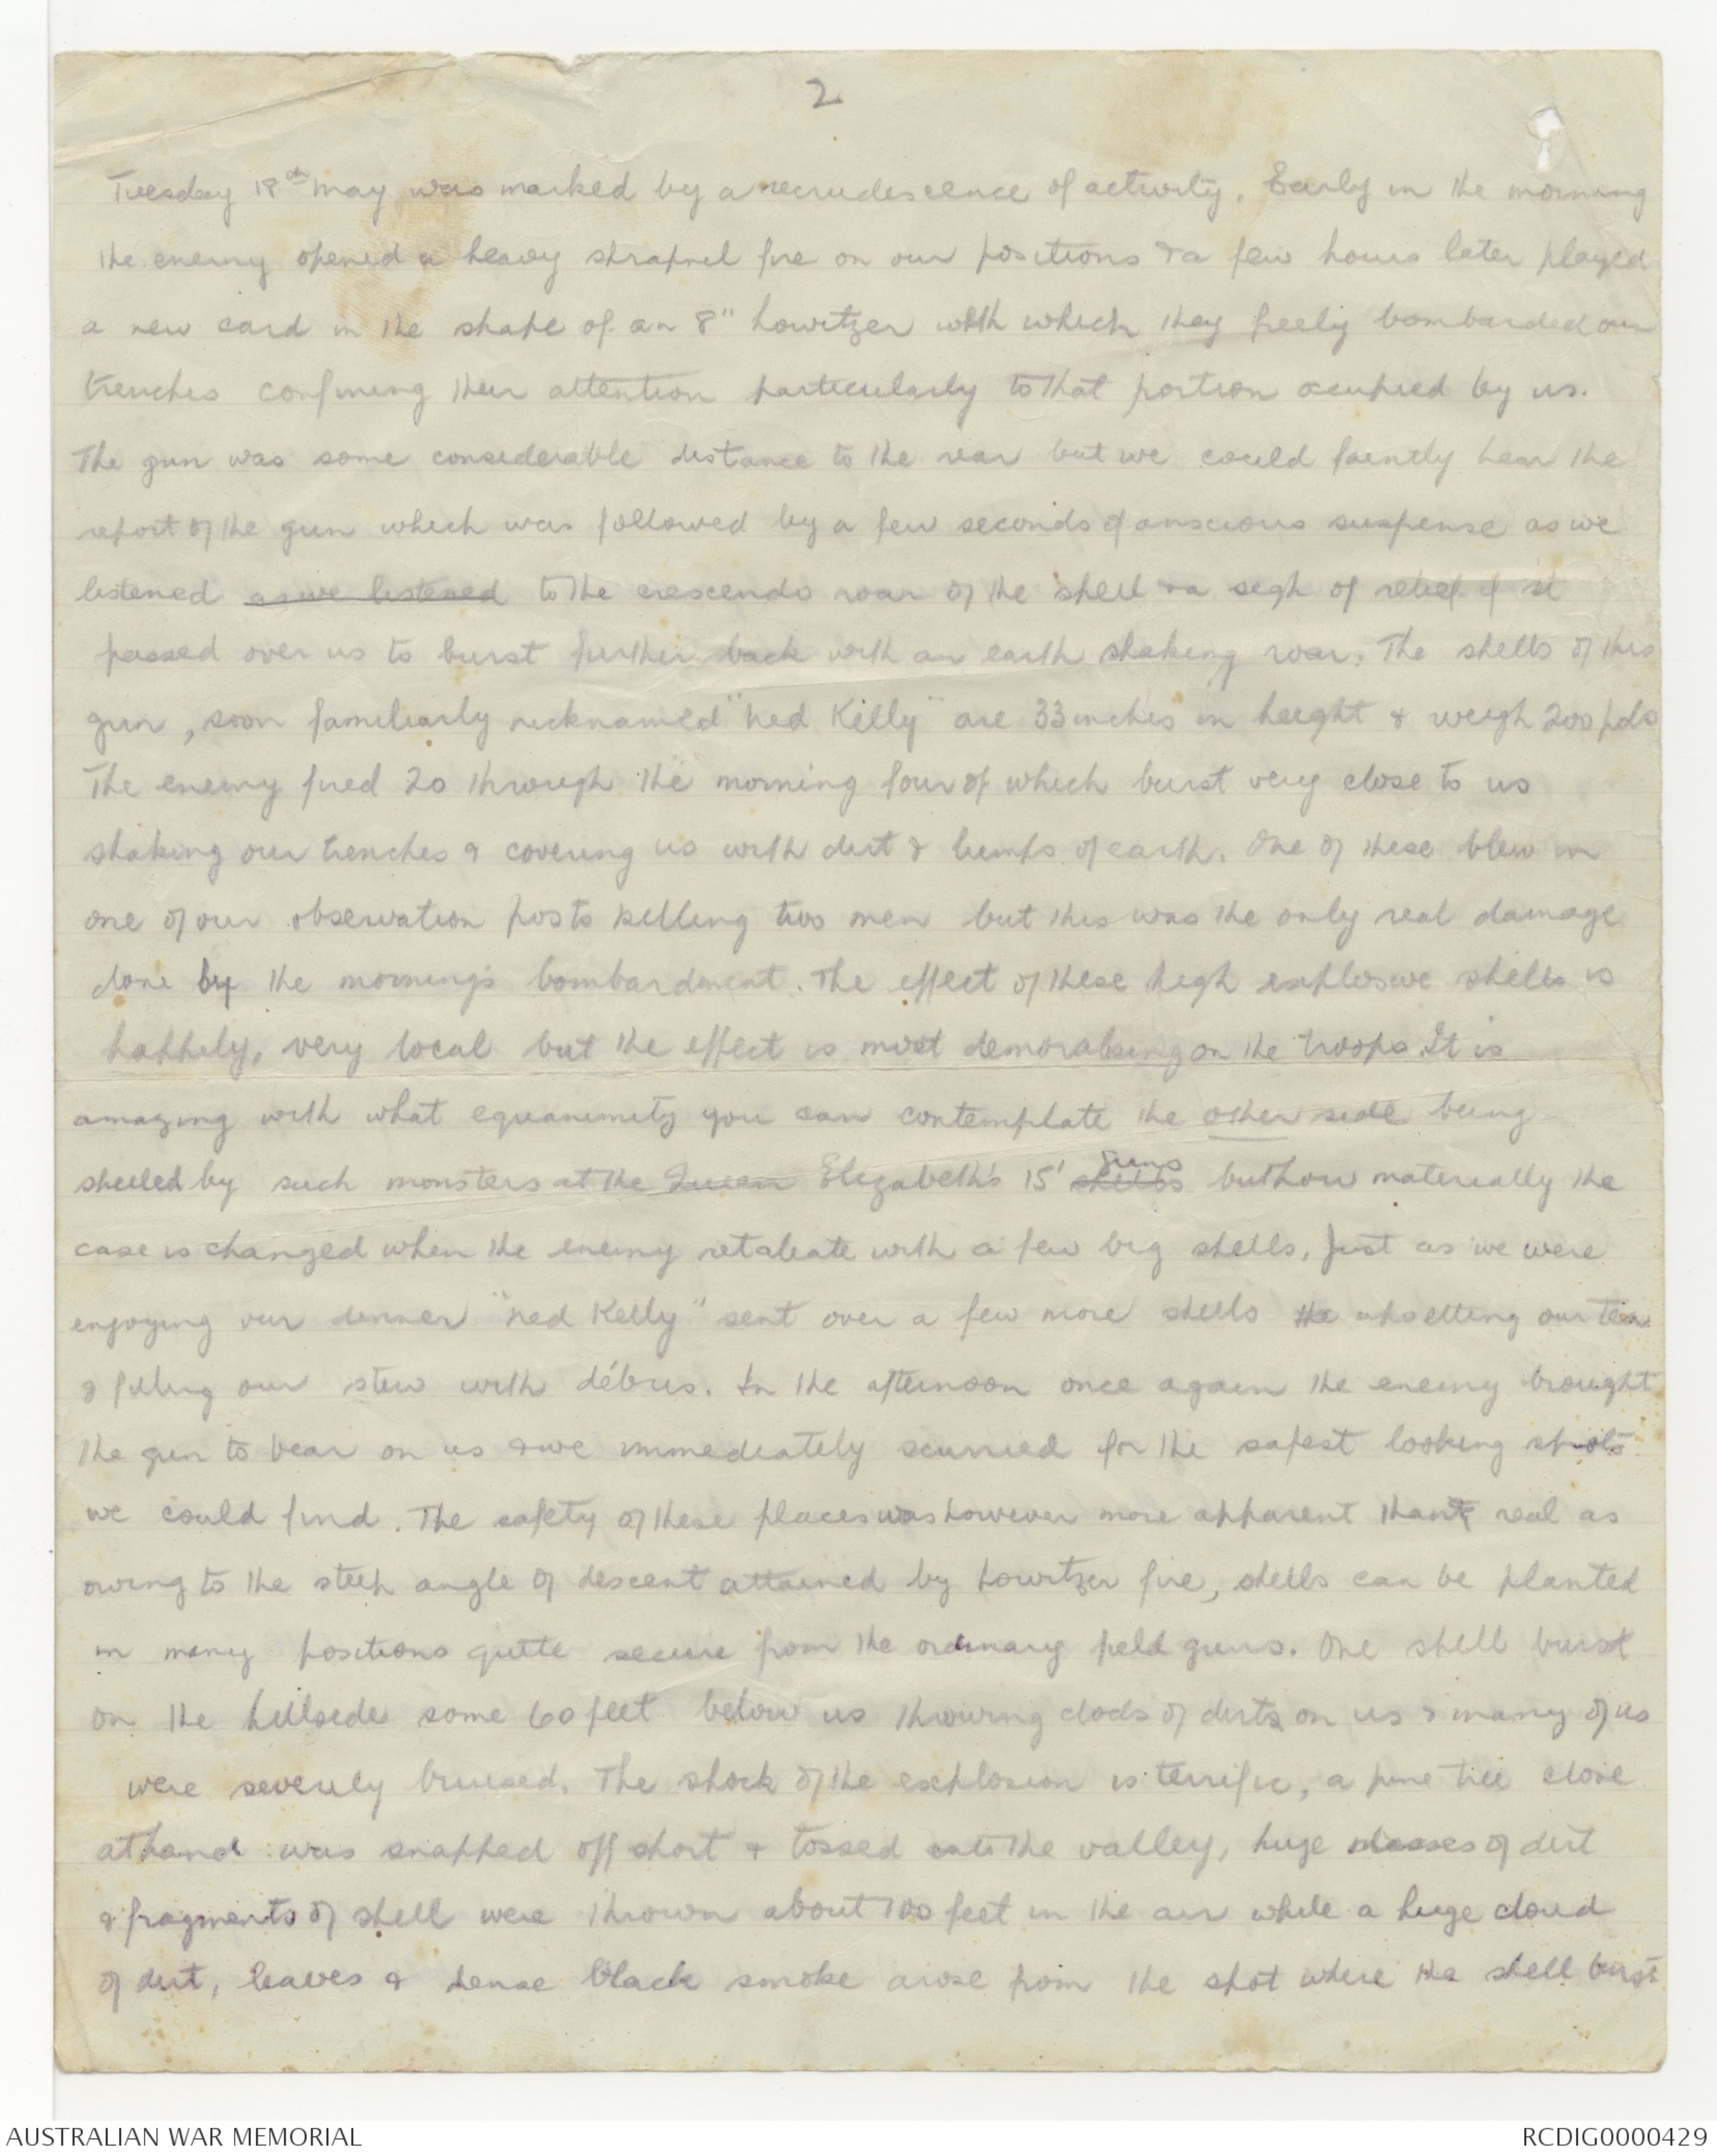 2
Tuesday 18th May was marked by a recrudescence of activity. Early in the morning
the enemy opened a heavy shrapnel fire on our positions & a few hours later played
a new card in the shape of an 8" howitzer with which they freely bombarded our
trenches confining their attention particularly to that portion occupied by us.
The gun was some considerable distance to the rear but we could faintly hear the
report of the gun which was followed by a few seconds of anscious suspense as we
listened as we listened to the crescendo roar of the shell & a sigh of relief if it
passed over us to burst further back with an earth shaking roar. The shells of this
gun, soon familiarly nicknamed "Ned Kelly" are 33 inches in height & weigh 200 pds
The enemy fired 20 through the morning four of which burst very close to us
shaking our trenches & covering us with dirt & lumps of earth. One of these blew in
one of our observation posts killing two men but this was the only real damage
done by the morning's bombardment. The effect of these high explosive shells is
happily, very local but the effect is most demoralising on the troops. It is
amazing with what equanimity you can contemplate the other side being
shelled by such monsters at the Queen Elizabeth's 15' shells guns but how materially the
case is changed when the enemy retaliate with a few big shells. Just as we were
enjoying our dinner "Ned Kelly" sent over a few more shells the upsetting our tea
& filling our stew with débris. In the afternoon once again the enemy brought
the gun to bear on us & we immediately scurried for the safest looking spots
we could find. The safety of these places was however more apparent than real as
owing to the steep angle of descent attained by howitzer fire, shells can be planted
in many positions quite secure from the ordinary field guns. One shell burst
on the hillside some 60 feet below us throwing clods of dirt on us & many of us
were severely bruised. The shock of the explosion is terrific, a pine tree close
at hand was snapped off short & tossed into the valley, huge masses of dirt
& fragments of shell were thrown about 100 feet in the air while a huge cloud
of dirt, leaves & dense black smoke arose from the spot where the shell burst
AUSTRALIAN WAR MEMORIAL
RCDIG0000429